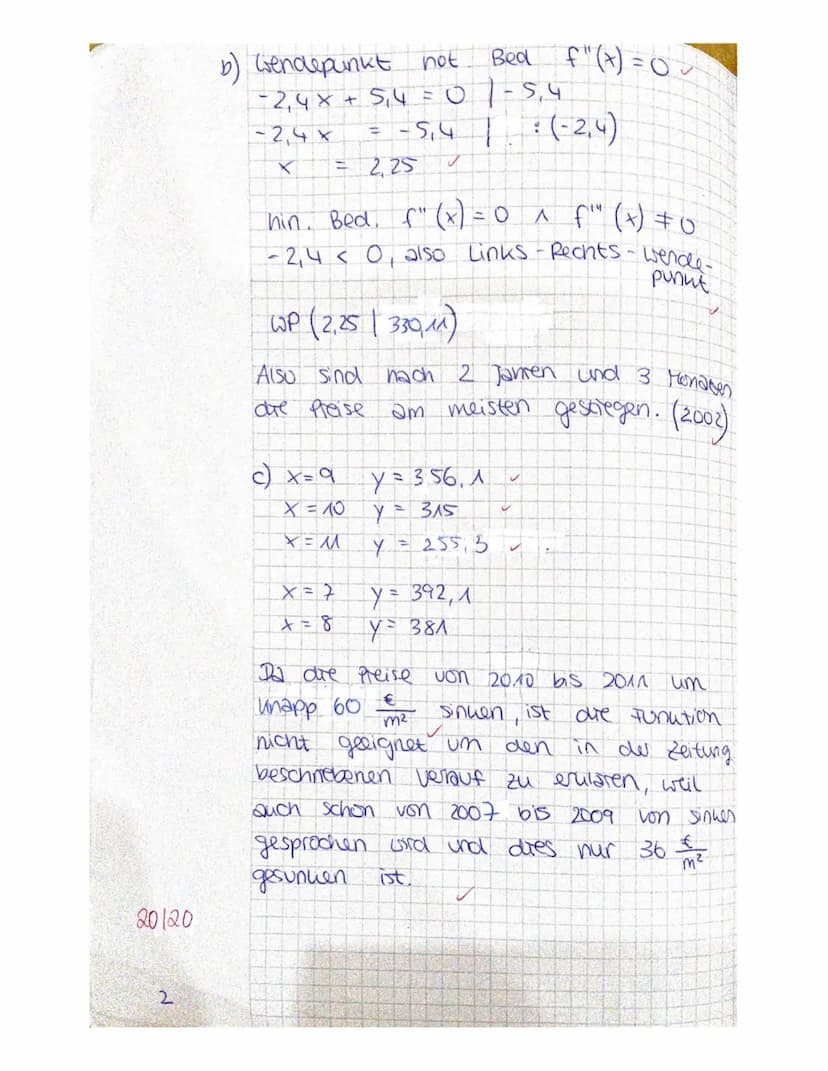 b) Wendepunkt not. Bed f"(x) = 0 ✓
-2,4x + 5,4 = 0 | -5,4
-2,4x = -5,4 | : (-2,4)
x = 2,25 ✓
hin. Bed. f"(x) = 0 ∧ f"'(x) ≠ 0
-2,4 < 0, also Links-Rechts-Wende-
punkt ✓
WP (2,25 | 330,11)
Also sind nach 2 Jahren und 3 Monaten
die Preise am meisten gestiegen. (2002) ✓
c) x=9 y = 356,1 ✓
x = 10 y = 315 ✓
x = 11 y = 255,3 ✓
x = 7 y = 392,1
x = 8 y = 381
Da die Preise von 2010 bis 2011 um
knapp 60 €/m² sinken, ist die Funktion
nicht geeignet um den in der Zeitung
beschriebenen Verauf zu erklären, weil
auch schon von 2007 bis 2009 von sinken
gesprochen wird und dies nur 36 €/m²
gesunken ist. ✓
20/20
2